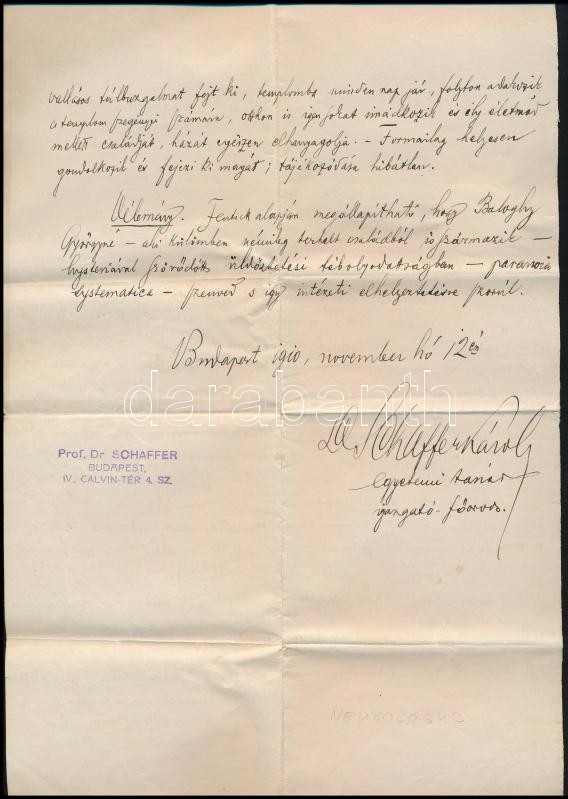 vallásos túlbuzgalmat fejt ki, templomba minden nap jár, folyton adakozik
a templom szegényei számára, otthon is igen sokat imádkozik és ily életmód
mellett családját, házát egészen elhanyagolja. – Formailag helyesen
gondolkozik és fejezi ki magát; tájékozódása hibátlan.
Vélemény. Fentiek alapján megállapítható, hogy Baloghy
Györgyné – aki különben némileg terhelt családból is származik –
hysteriával szövődött üldöztetési tébolyodottságban – paranoia
systematica – szenved s így intézeti elhelyeztetésre szorúl.
Budapest 1910, november hó 12én
darabanth
Dr Schaffer Károly
egyetemi tanár
igazgató-főorvos.
Prof. Dr SCHAFFER
BUDAPEST,
IV., CALVIN-TÉR 4. SZ.
NEUROLOGUS